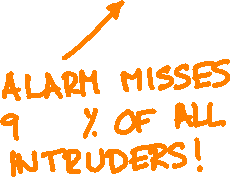 ALARM MISSES
9 % OF ALL
INTRUDERS!